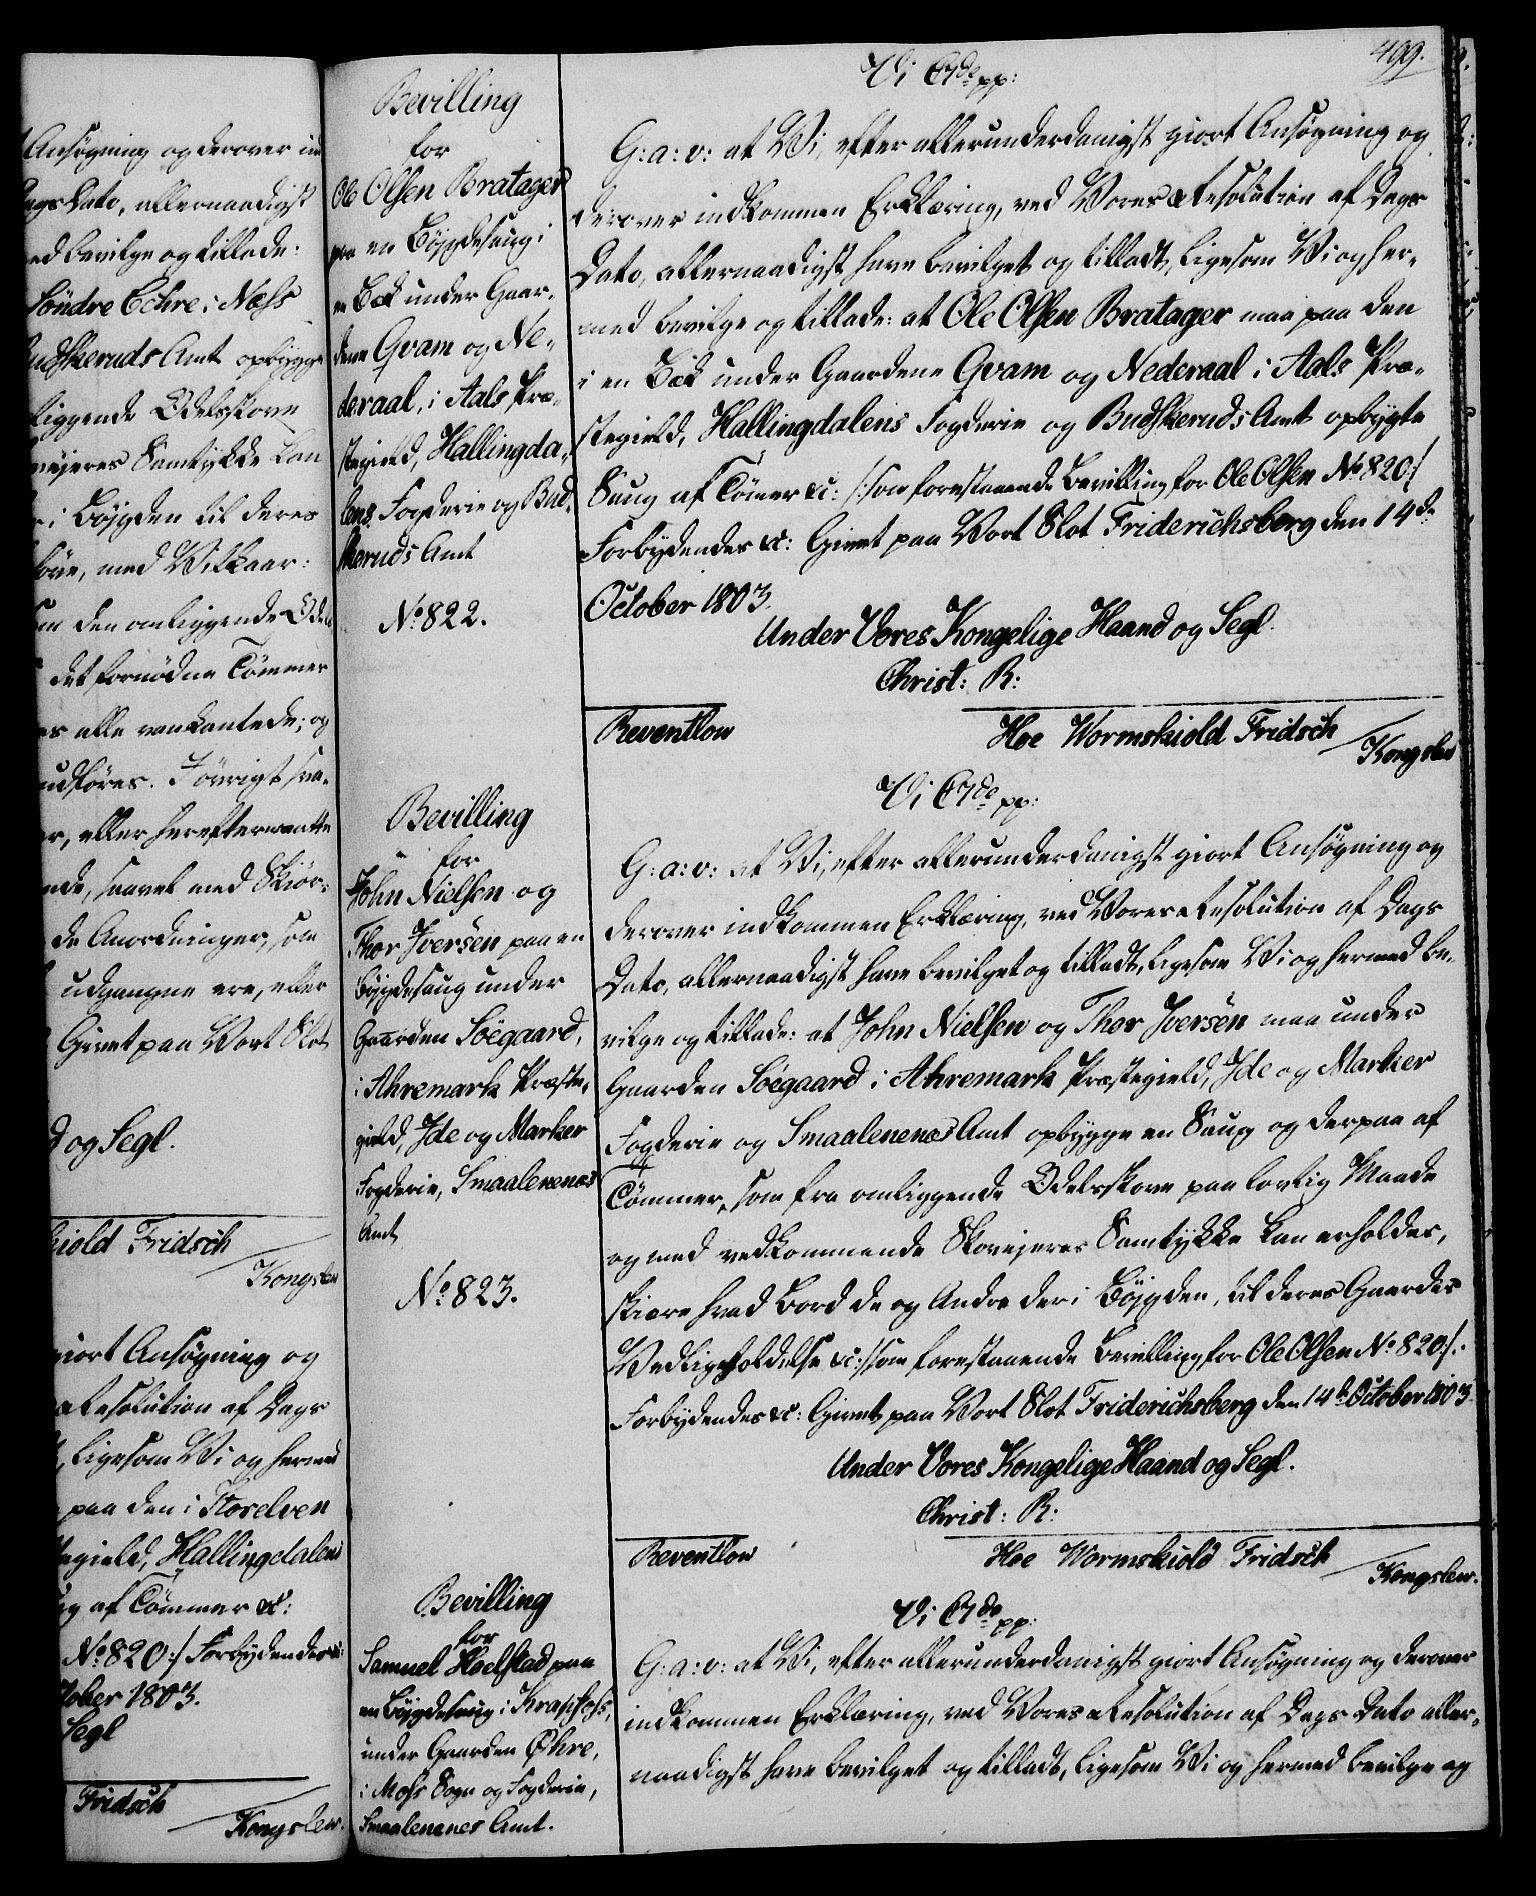 Ansøgning og derover in
Dags Dato, allernaadigst
ed bevilge og tillade:
Söndre Echre i Næss
Budskeruds Amt opbygge
liggende Odelsskove
vejeres Samtykke kan
i Bøjgden til deres
med Vilkaar:
den omliggende Odels
det fornødne Tømmer
es alle vankantede; og
udføres. Iøvrigt sva-
r, eller herefter maatte
nde, saavel med Skiør-
de Anordninger, som
udgangne ere, eller
Givet paa Vort Slot
d og Segl.
kiold Fridsch
Kongslew
giort Ansøgning og
Resolution af Dags
, ligesom Vi og hermed
paa den i Storelven
stegield, Hallingdalens
ug af Tømmer &c:
No 820 :/ Forbydendes &c:
tober 1803.
Segl
Fridsch
Kongslew.
Bevilling
for
Ole Olsen Bratager
paa en Bøjgdesaug i
en Bæk under Gaar-
dene Qvam og Ne-
deraal, i Aals Præ-
stegield, Hallingda-
lens Fogderie og Bud-
skeruds Amt
No 822.
Bevilling
for
John Nielsen og
Thor Jversen paa en
Bøjgdesaug under
Gaarden Söegaard,
i Ahremark Præste-
gield, Jde og Marker
Fogderie, Smaalenenes
Amt
No 823.
Bevilling
for
Samuel Hoelstad paa
en Bøjgdesaug i Krapfoss,
under Gaarden Øhre,
i Moss Sogn og Fogderie,
Smaalenenes Amt.
499.
Vi C 7de pp:
G: a: v: at Vi, efter allerunderdanigst giort Ansøgning og
derover indkommen Erklæring, ved Vores Resolution af Dags
Dato, allernaadigst have bevilget og tilladt, ligesom Vi og her-
med bevilge og tillade: at Ole Olsen Bratager maa paa den
i en Bæk under Gaardene Qvam og Nederaal i Aals Præ-
stegield, Hallingdalens Fogderie og Budskeruds Amt opbygte
Saug af Tømer &c: /: som forestaaende Bevilling for Ole Olsen No 820 :/
Forbydendes &c: Givet paa Vort Slot Friderichsberg den 14de
October 1803.
Under Vores Kongelige Haand og Segl.
Christ: R:
Reventlow Hoe Wormskiold Fridsch
Kongslew
Vi C 7de pp:
G: a: v: at Vi, efter allerunderdanigst giort Ansøgning og
derover indkommen Erklæring, ved Vores Resolution af Dags
Dato, allernaadigst have bevilget og tilladt, ligesom Vi og hermed be-
vilge og tillade: at John Nielsen og Thor Jversen maa under
Gaarden Söegaard i Ahremark Præstegield, Jde og Marker
Fogderie og Smaalenenes Amt opbygge en Saug og derpaa af
Tømmer, som fra omliggende Odelsskove paa lovlig Maade
og med vedkommende Skovejeres Samtykke kan erholdes,
skiære hvad Bord de og Andre der i Bøjgden, til deres Gaardes
Vedligeholdelse &c: /: som forestaaende Bevilling for Ole Olsen No 820 :/.
Forbydendes &c: Givet paa Vort Slot Friderichsberg den 14de October 1803.
Under Vores Kongelige Haand og Segl.
Christ: R:
Reventlow Hoe Wormskiold Fridsch
Kongslew.
Vi C 7de pp:
G: a: v: at Vi, efter allerunderdanigst giort Ansøgning og derover
indkommen Erklæring, ved Vores Resolution af Dags Dato aller-
naadigst have bevilget og tilladt, ligesom Vi og hermed bevilge og